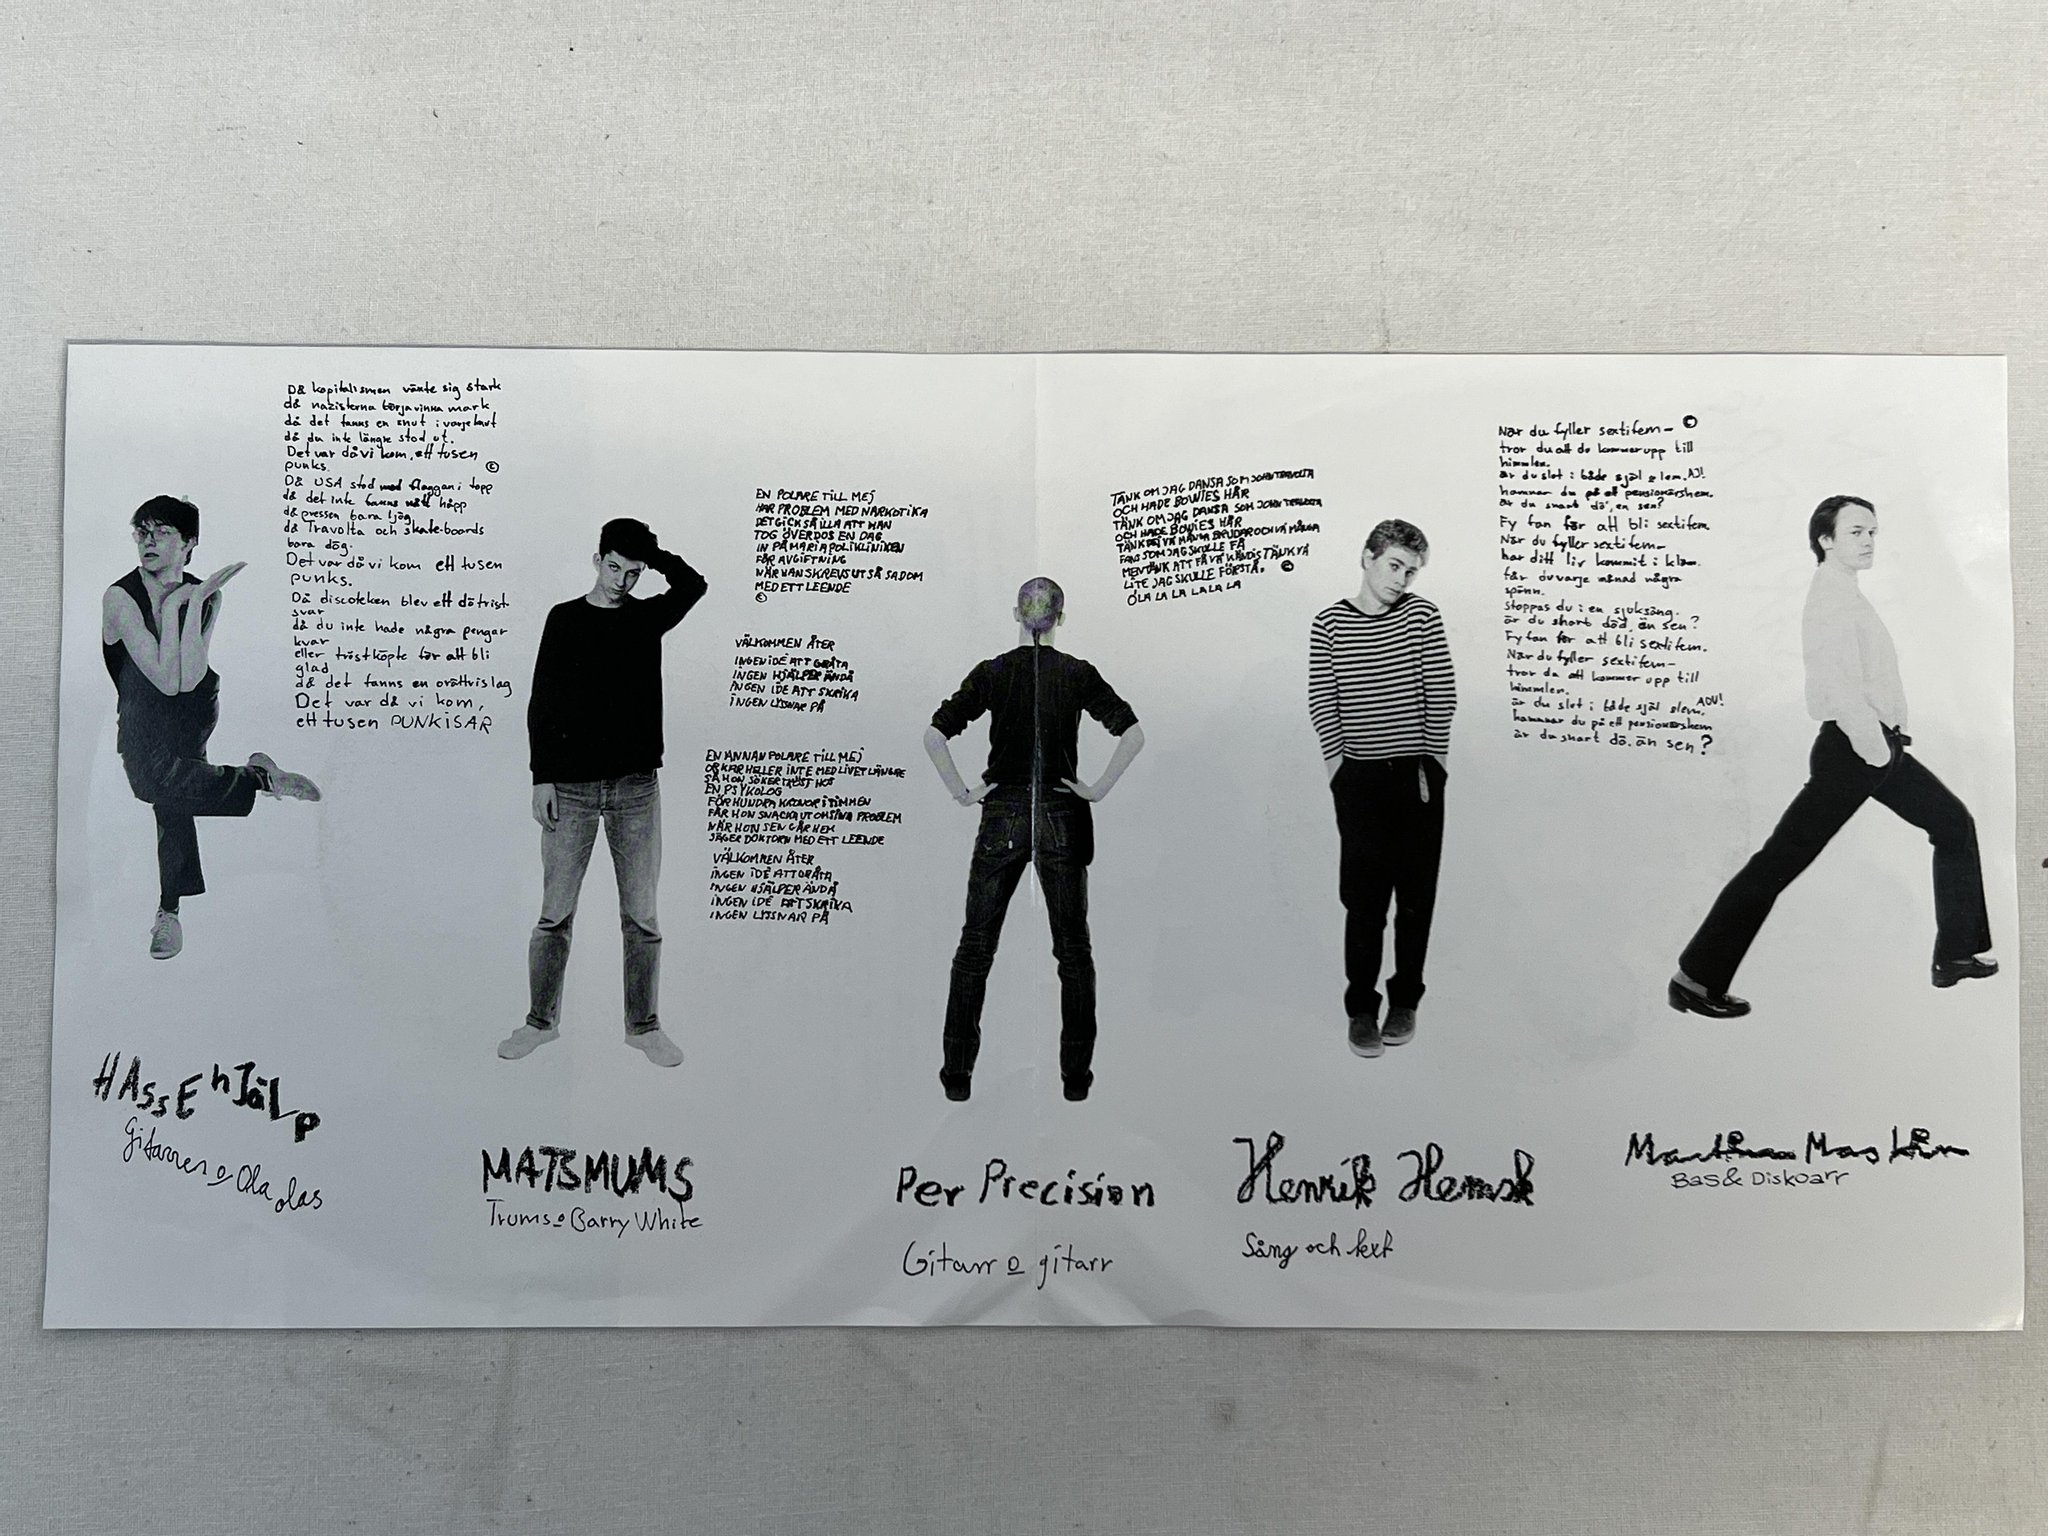 Då kapitalismen växte sig stark
då nazisterna börja vinna mark
då det fanns en snut i varje knut
då du inte längre stod ut.
Det var då vi kom, ett tusen
punks. ©
Då USA stod med flaggan i topp
då det inte fanns nått håpp
då pressen bara ljög
då Travolta och skate-boards
bara dög.
Det var då vi kom ett tusen
punks.
Då discoteken blev ett dötrist
svar
då du inte hade några pengar
kvar
eller tröstköpte för att bli
glad
då det fanns en orättvis lag
Det var då vi kom,
ett tusen PUNKISAR
EN POLARE TILL MEJ
HAR PROBLEM MED NARKOTIKA
DET GICK SÅ ILLA ATT HAN
TOG ÖVERDOS EN DAG
IN PÅ MARIAPOLIKLINIKEN
FÖR AVGIFTNING
NÄR HAN SKREVS UT SÅ SA DOM
MED ETT LEENDE
©
VÄLKOMMEN ÅTER
INGEN IDÉ ATT GRÅTA
INGEN HJÄLPER ÄNDÅ
INGEN IDE ATT SKRIKA
INGEN LYSSNAR PÅ
EN ANNAN POLARE TILL MEJ
ORKAR HELLER INTE MED LIVET LÄNGRE
SÅ HON SÖKER TRÖST HOS
EN PSYKOLOG
FÖR HUNDRA KRONOR I TIMMEN
FÅR HON SNACKA UT OM SINA PROBLEM
NÄR HON SEN GÅR HEM
SÄGER DOKTORN MED ETT LEENDE
VÄLKOMMEN ÅTER
INGEN IDÉ ATT GRÅTA
INGEN HJÄLPER ÄNDÅ
INGEN IDÉ ATT SKRIKA
INGEN LYSSNAR PÅ
TÄNK OM JAG DANSA SOM JOHN TRAVOLTA
OCH HADE BOWIES HÅR
TÄNK OM JAG DANSA SOM JOHN TRAVOLTA
OCH HADE BOWIES HÅR
TÄNK DEJ VA MÅNGA BRUDAR OCH VA MÅNGA
FANS SOM JAG SKULLE FÅ
MEN TÄNK ATT FÅ VA KÄNDIS TÄNK VA
LITE JAG SKULLE FÖRSTÅ. ©
O LA LA LA LA LA LA
När du fyller sextifem- ©
tror du att du kommer upp till
himmlen.
är du slut i både själ o lem. AJ!
hamnar du på ett pensionärshem.
är du snart dö, en sen?
Fy fan för att bli sextifem
När du fyller sextifem-
har ditt liv kommit i kläm
får du varje månad några
spänn.
stoppas du i en sjuksäng.
är du snart död, än sen?
Fy fan för att bli sextifem.
När du fyller sextifem-
tror du att kommer upp till
himmlen.
är du slut i både själ o lem. AOU!
hamnar du på ett pensionärshem
är du snart dö. än sen?
HASSE hJäLp
Gitarrer o Ola olas
MATS MUMS
Trums o Barry White
Per Precision
Gitarr o gitarr
Henrik Hemsk
Sång och text
Bas & Diskoarr